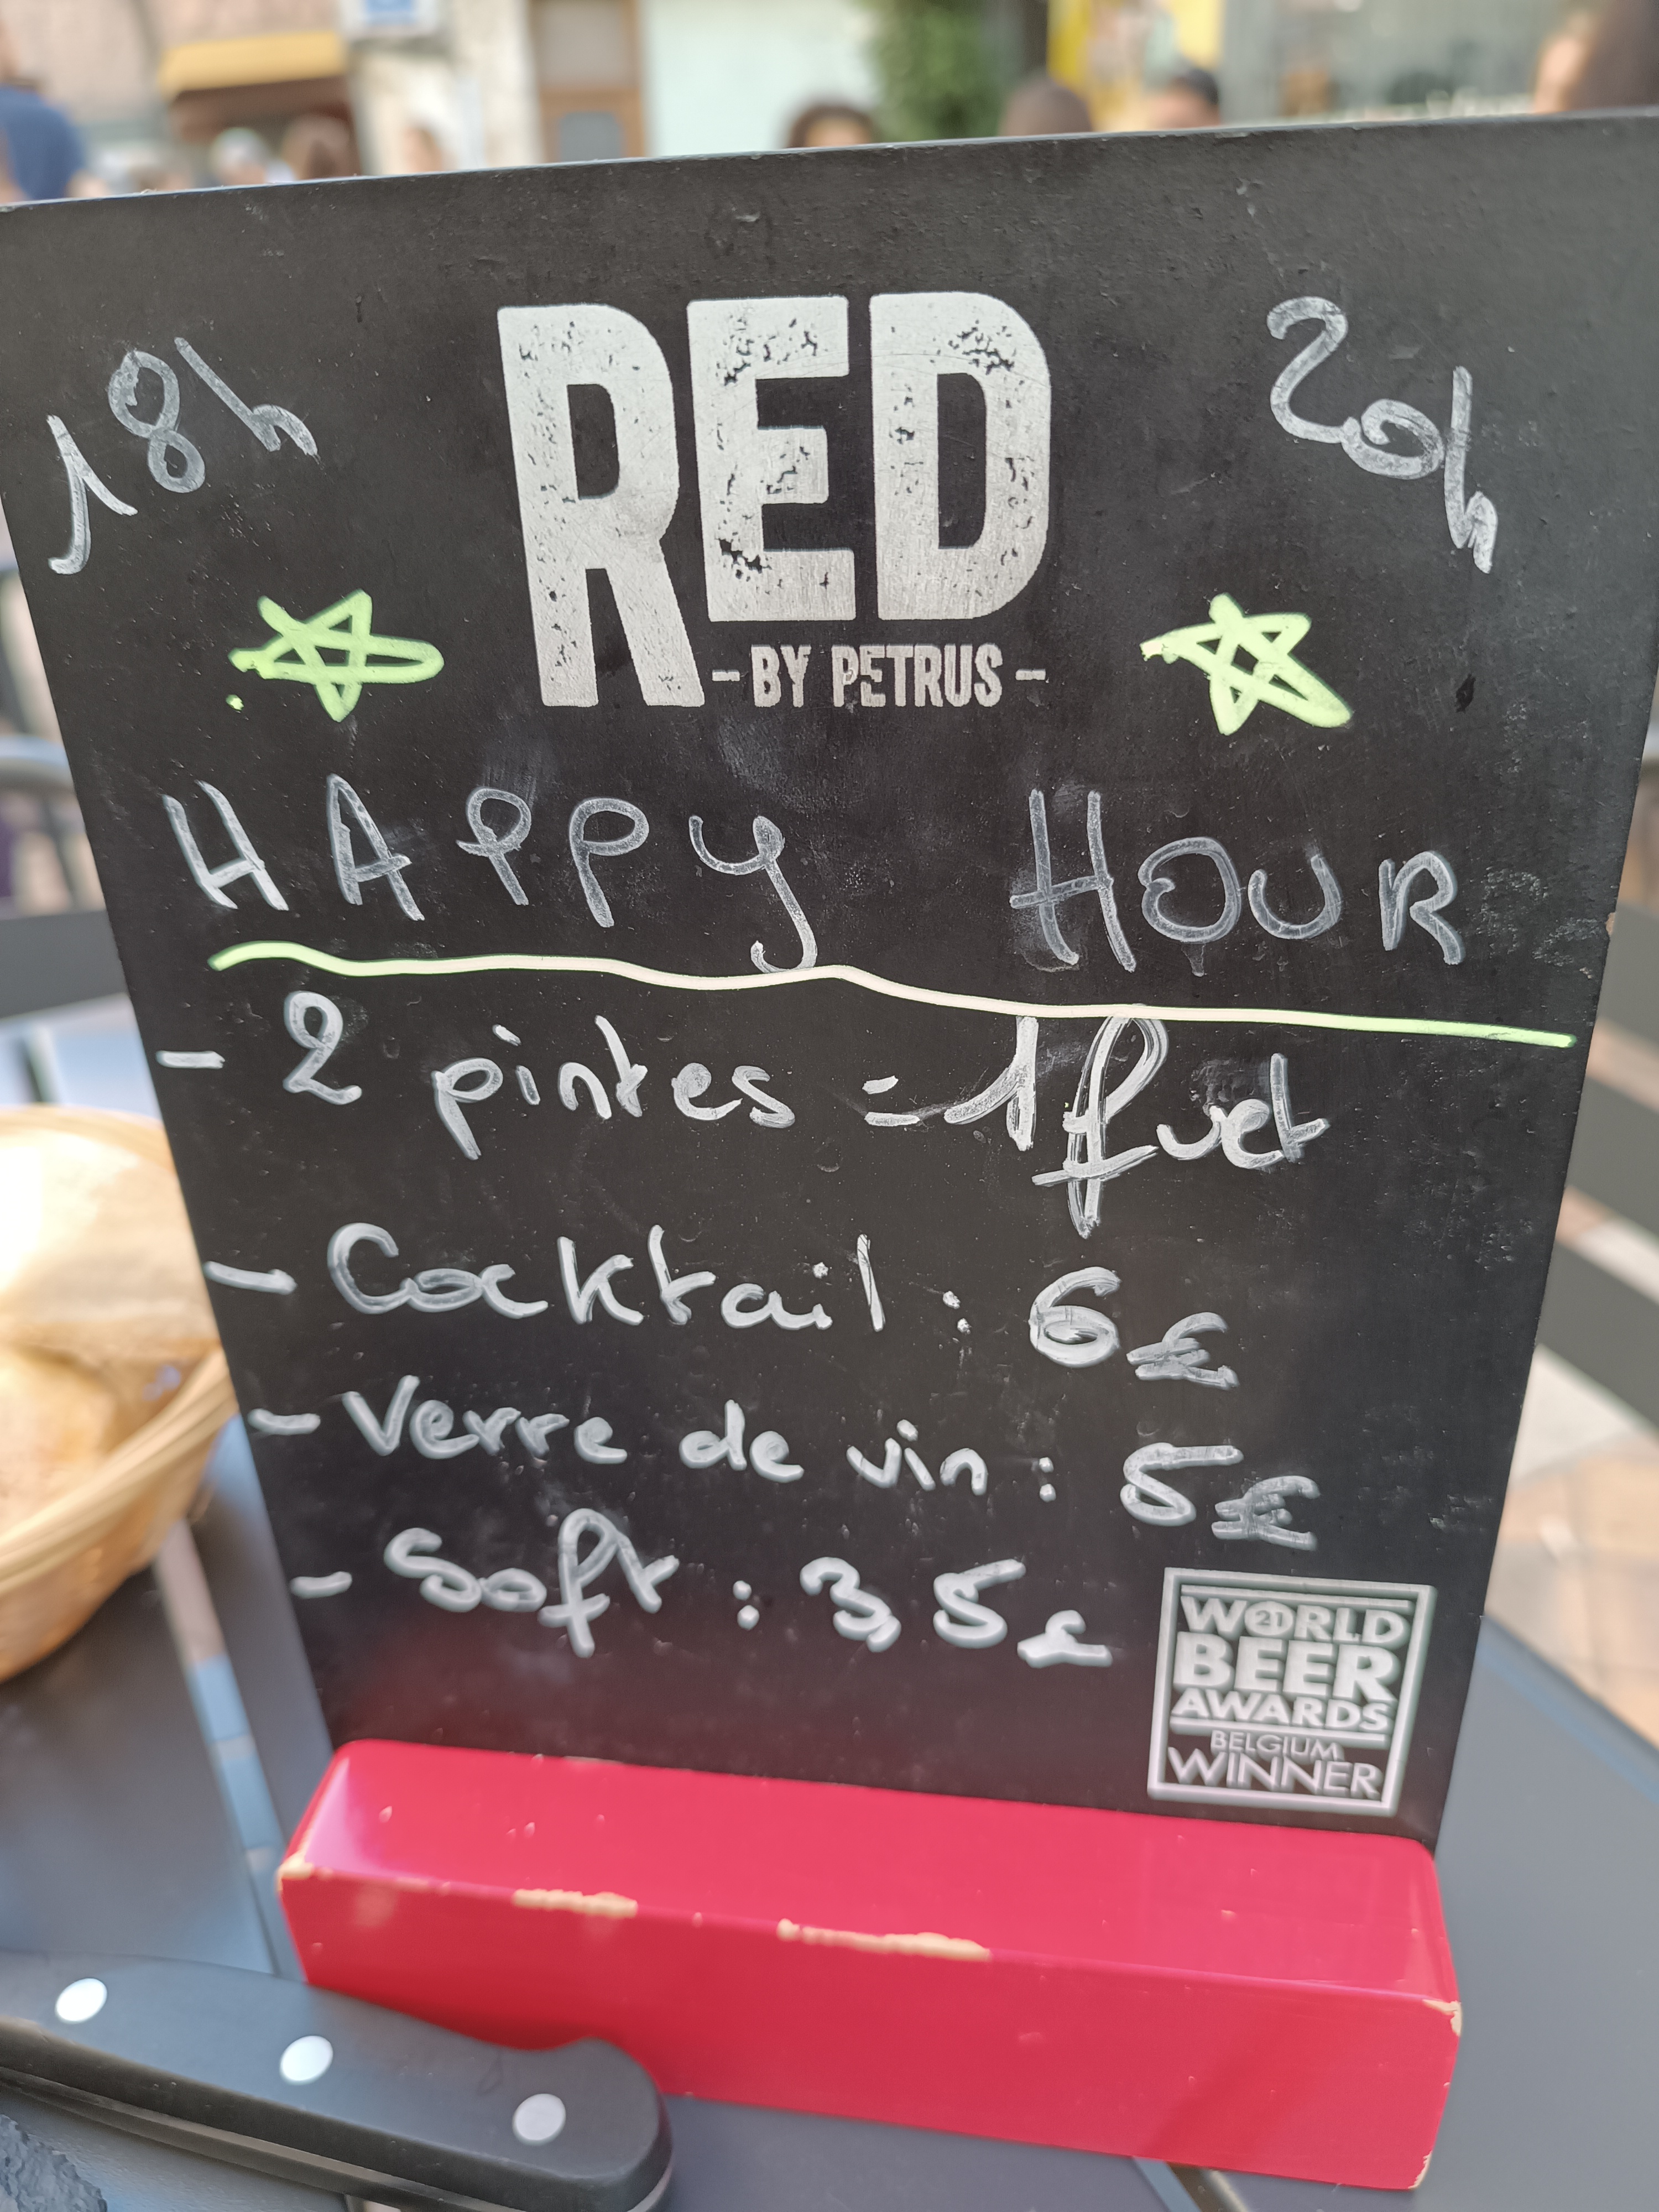 18h
RED
20h
- BY PETRUS -
HAPPY HOUR
- 2 pintes = 1 fuet
- Cocktail : 6€
- Verre de vin : 5€
- Soft : 3,5€
WORLD
21
BEER
AWARDS
BELGIUM
WINNER